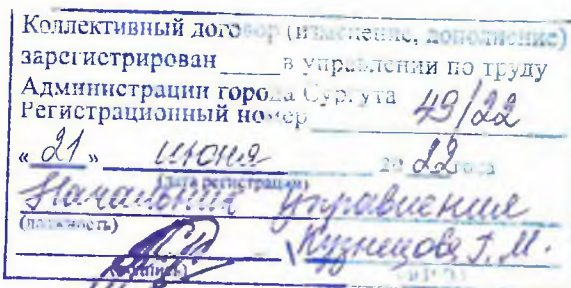 Коллективный договор (изменение, дополнение)
зарегистрирован _____ в управлении по труду
Администрации города Сургута
Регистрационный номер 49/22
« 21 » июня 20 22 года
(дата регистрации)
Начальник управления
(должность)
Кузнецова Г.М.
(подпись) (Ф.И.О.)